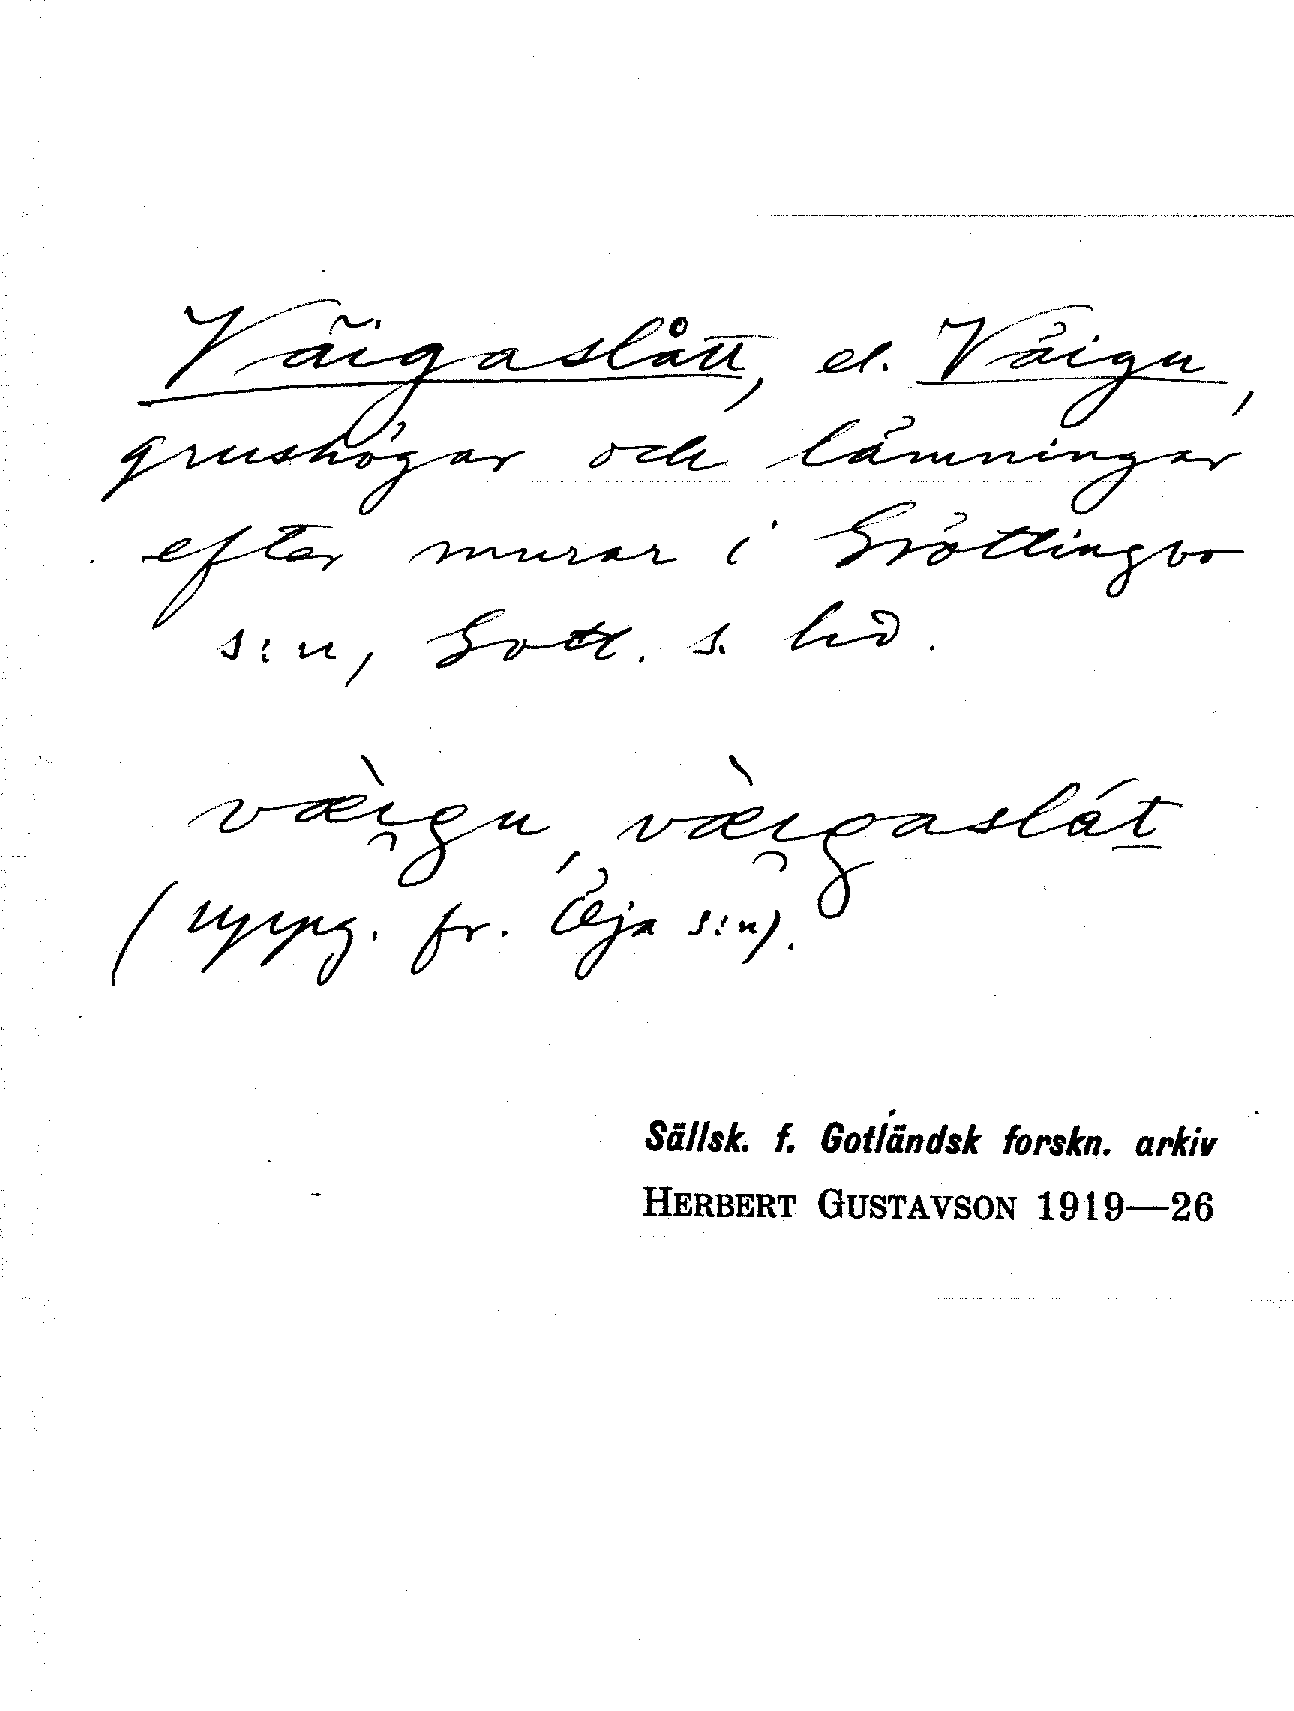 Väigaslått, el. Väigu,
grushögar och lämningar
efter murar i Gröttlingbo
s:n, Gotl. s. hd.
væ̀i̯gu, væ̀i̯gaslát
(uppg. fr. Öja s:n).
Sällsk. f. Gotländsk forskn. arkiv
HERBERT GUSTAVSON 1919—26